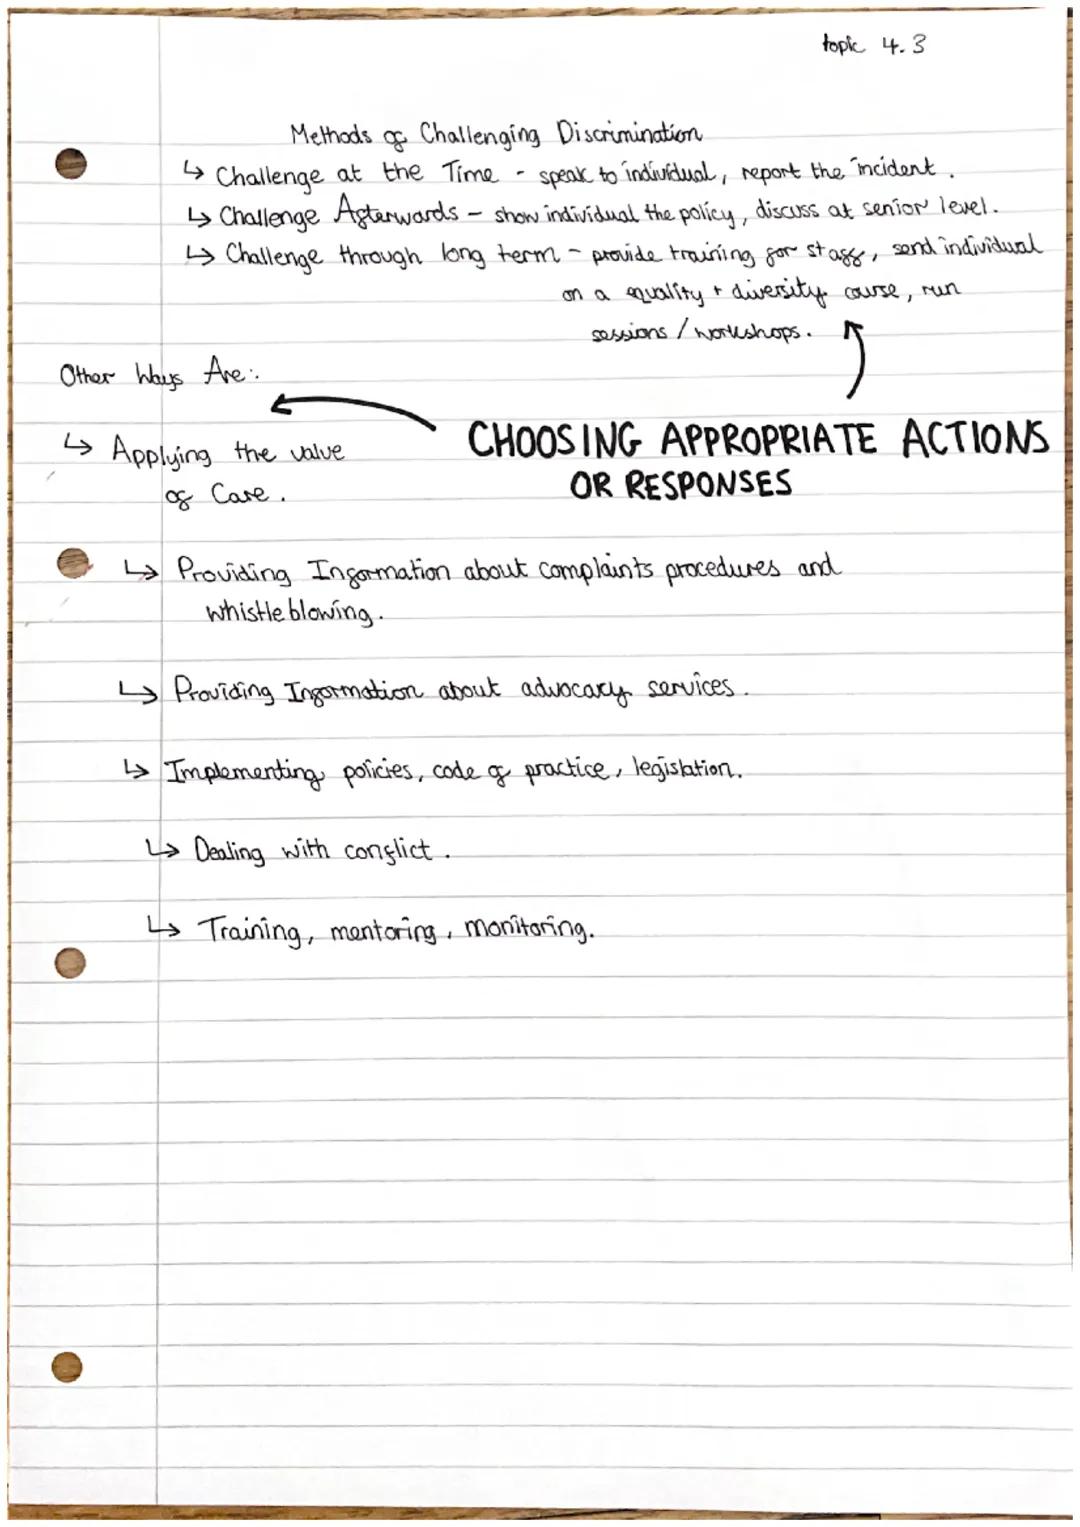 topic 4.3
Methods of Challenging Discrimination
↳ Challenge at the Time - speak to individual, report the incident.
↳ Challenge Afterwards - show individual the policy, discuss at senior level.
↳ Challenge through long term - provide training for staff, send individual
on a equality + diversity course, run
sessions / workshops.
Other Ways Are:
CHOOSING APPROPRIATE ACTIONS
OR RESPONSES
↳ Applying the value
of Care.
↳ Providing Information about complaints procedures and
whistleblowing.
↳ Providing Information about advocacy services.
↳ Implementing policies, code of practice, legislation.
↳ Dealing with conflict.
↳ Training, mentoring, monitoring.